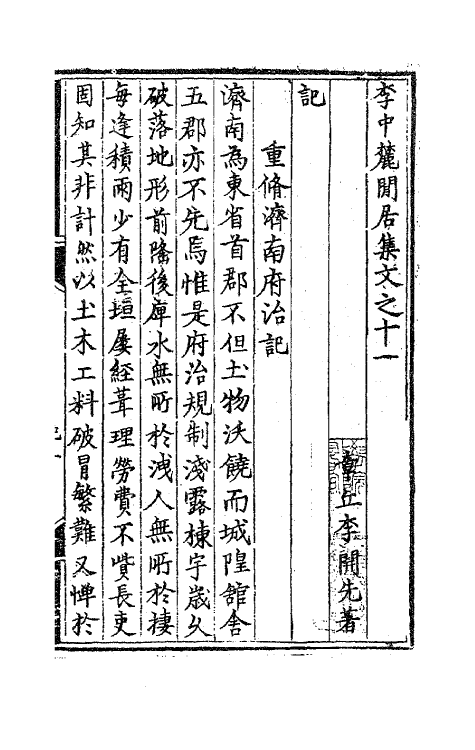 李中麓閒居集文之十一
章丘李開先著
記
重脩濟南府治記
濟南為東省首郡不但土物沃饒而城隍舘舎
五郡亦不先焉惟是府治規制淺露棟宇歲久
破落地形前隆後庳水無所於洩人無所於棲
每逢積雨少有全垣屢經葺理勞費不貲長吏
固知其非計然以土木工料破冒繁難又憚於